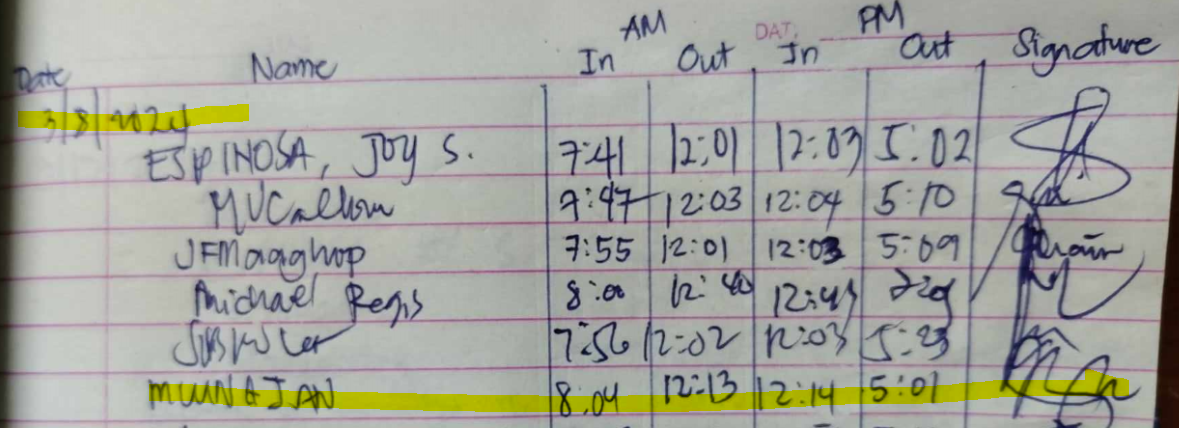 AM DAT: PM
Date Name In Out In Out Signature
3/8/2024
ESPINOSA, JOY S. 7:41 12:01 12:03 5:02
7:47 12:03 12:04 5:10
7:55 12:01 12:03 5:09
Michael Regis 8:00 12:40
7:56 12:02 12:03 5:23
8:04 12:13 12:14 5:01